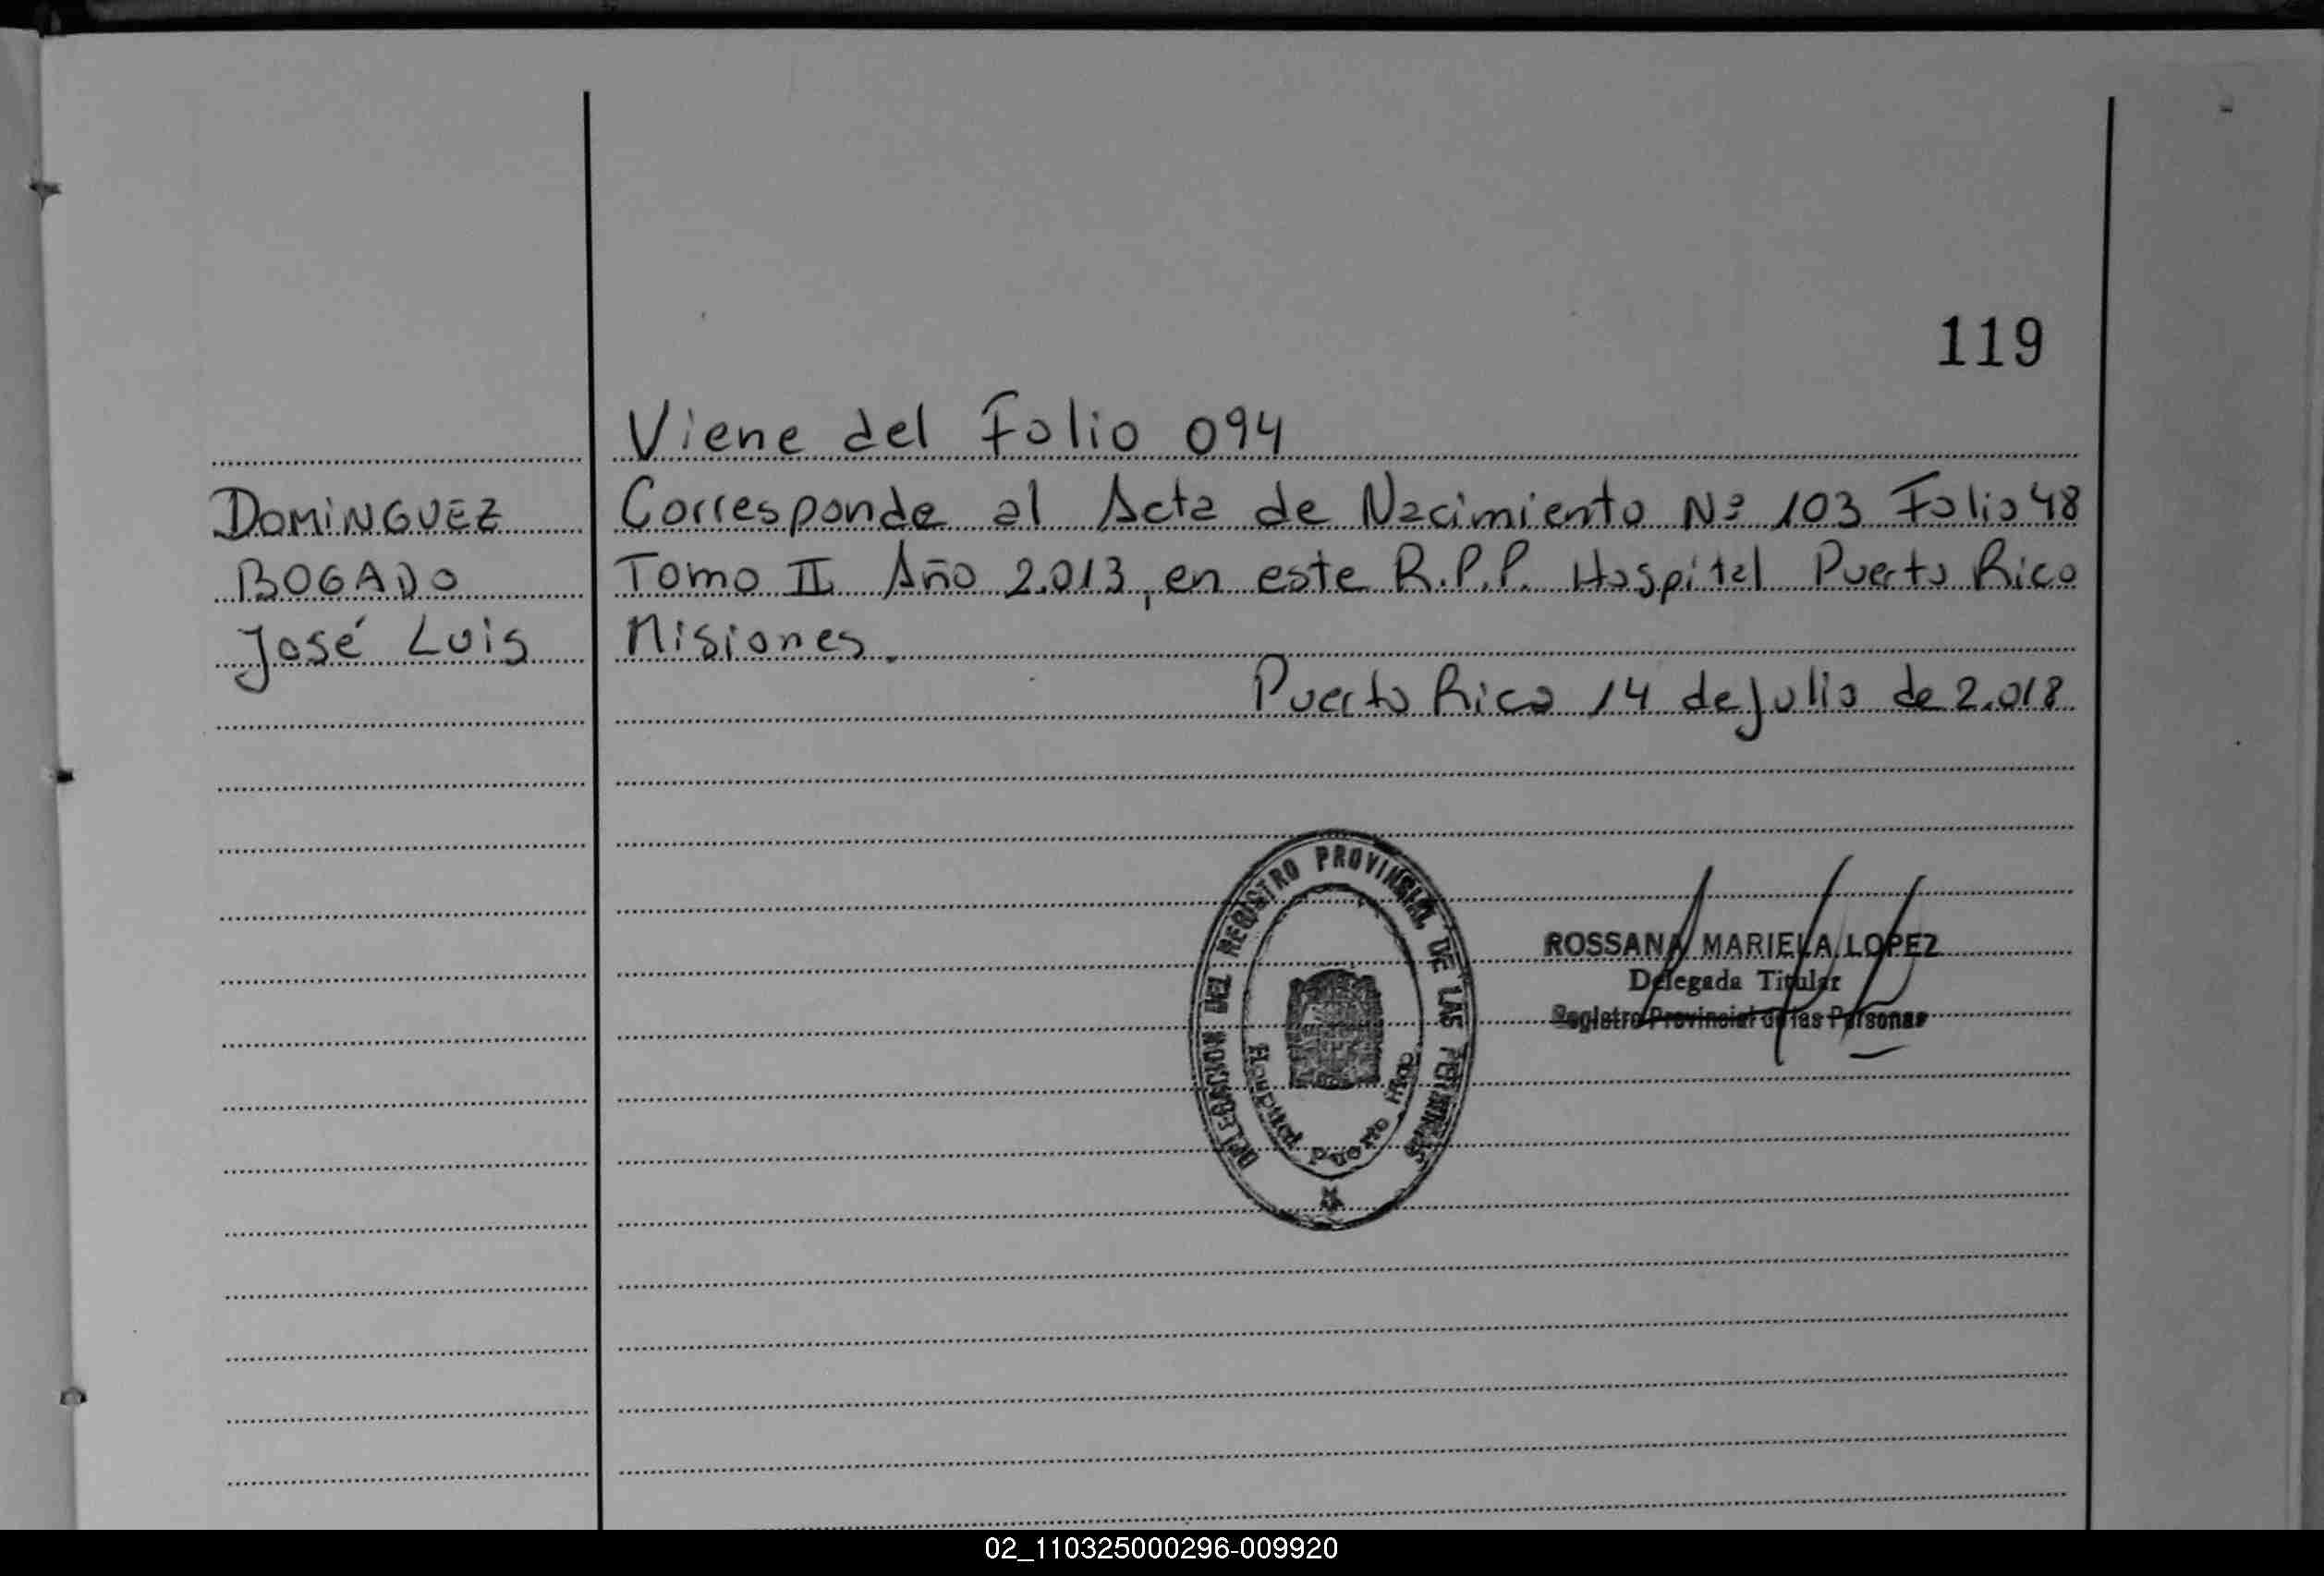 119
Viene del Folio 094
DOMINGUEZ Corresponde al Acta de Nacimiento Nº 103 Folio 48
BOGADO Tomo II Año 2.013, en este R.P.P. Hospital Puerto Rico
José Luis Misiones.
Puerto Rico 14 de Julio de 2.018
DELEGACION DEL REGISTRO PROVINCIAL DE LAS PERSONAS
Hospital Puerto Rico
ROSSANA MARIELA LOPEZ
Delegada Titular
Registro Provincial de las Personas
02_110325000296-009920